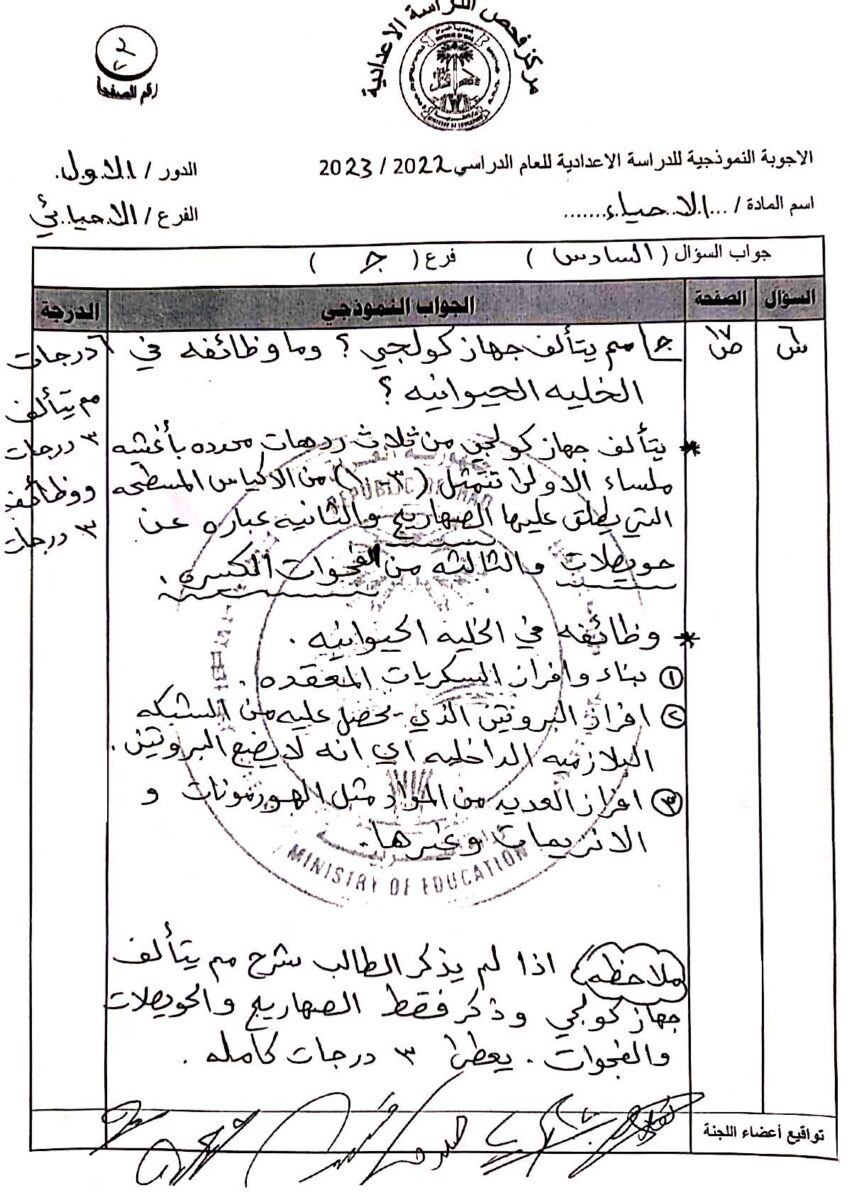 مركز فحص الدراسة الاعدادية
٢
رقم الصفحة
الاجوبة النموذجية للدراسة الاعدادية للعام الدراسي 2022 / 2023
الدور / الاول
اسم المادة / ... الاحياء .......
الفرع / الاحيائي
جواب السؤال ( السادس ) فرع ( ج )
السؤال الصفحة الجواب النموذجي الدرجة
س٦ ص١٧ ج/ مم يتألف جهاز كولجي ؟ وما وظائفه في ٦ درجات
الخليه الحيوانيه ؟
مم يتألف
* يتألف جهاز كولجي من ثلاث ردهات محدده بأغشيه
٣ درجات
ملساء الاولى تتمثل (٣-١٠) من الاكياس المسطحه
ووظائفه
التي يطلق عليها الصهاريج والثانيه عباره عن
٣ درجات
حويصلات والثالثه من الفجوات الكبيره .
* وظائفه في الخليه الحيوانيه .
① بناء وافراز السكريات المعقده .
② افراز البروتين الذي يحصل عليه من الشبكه
البلازميه الداخليه اي انه لا يضع البروتين .
③ افراز العديد من المواد مثل الهورمونات و
الانزيمات وغيرها.
REPUBLIC OF IRAQ
MINISTRY OF EDUCATION
ملاحظه اذا لم يذكر الطالب شرح مم يتألف
جهاز كولجي وذكر فقط الصهاريج والحويصلات
والفجوات . يعطى ٣ درجات كامله .
تواقيع أعضاء اللجنة